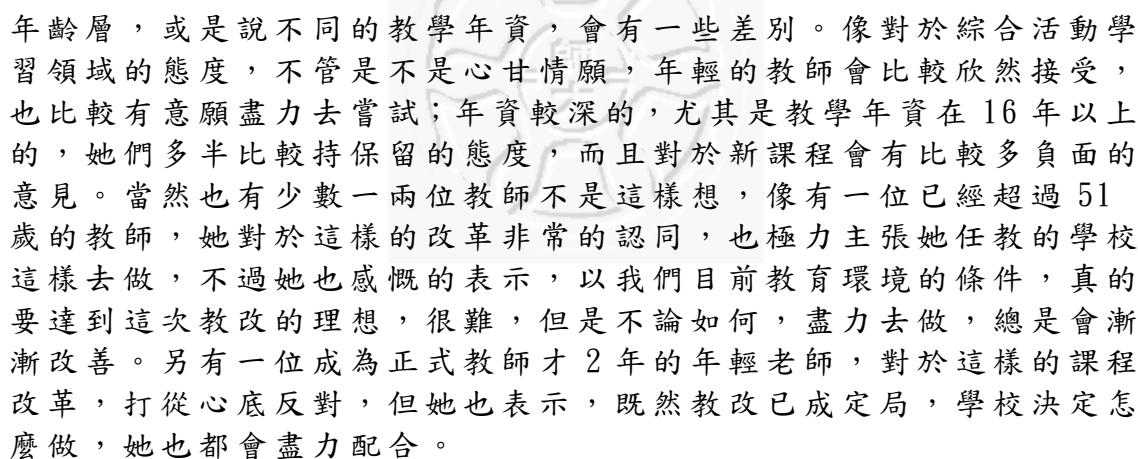 年齡層，或是說不同的教學年資，會有一些差別。像對於綜合活動學
習領域的態度，不管是不是心甘情願，年輕的教師會比較欣然接受，
也比較有意願盡力去嘗試；年資較深的，尤其是教學年資在 16 年以上
的，她們多半比較持保留的態度，而且對於新課程會有比較多負面的
意見。當然也有少數一兩位教師不是這樣想，像有一位已經超過 51
歲的教師，她對於這樣的改革非常的認同，也極力主張她任教的學校
這樣去做，不過她也感慨的表示，以我們目前教育環境的條件，真的
要達到這次教改的理想，很難，但是不論如何，盡力去做，總是會漸
漸改善。另有一位成為正式教師才 2 年的年輕老師，對於這樣的課程
改革，打從心底反對，但她也表示，既然教改已成定局，學校決定怎
麼做，她也都會盡力配合。